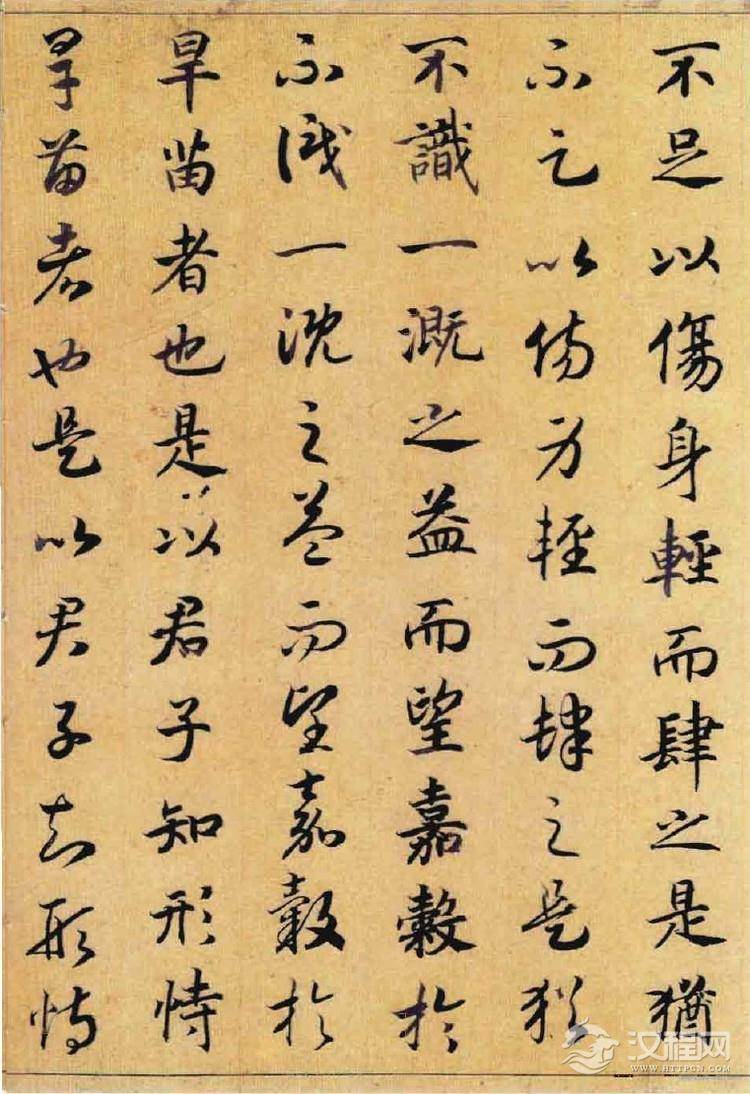 不足以傷身輕而肆之是猶
不足以傷身輕而肆之是猶
不識一溉之益而望嘉穀於
不識一溉之益而望嘉穀於
旱苗者也是以君子知形恃
旱苗者也是以君子知形恃
汉程网
WWW.HTTPCN.COM